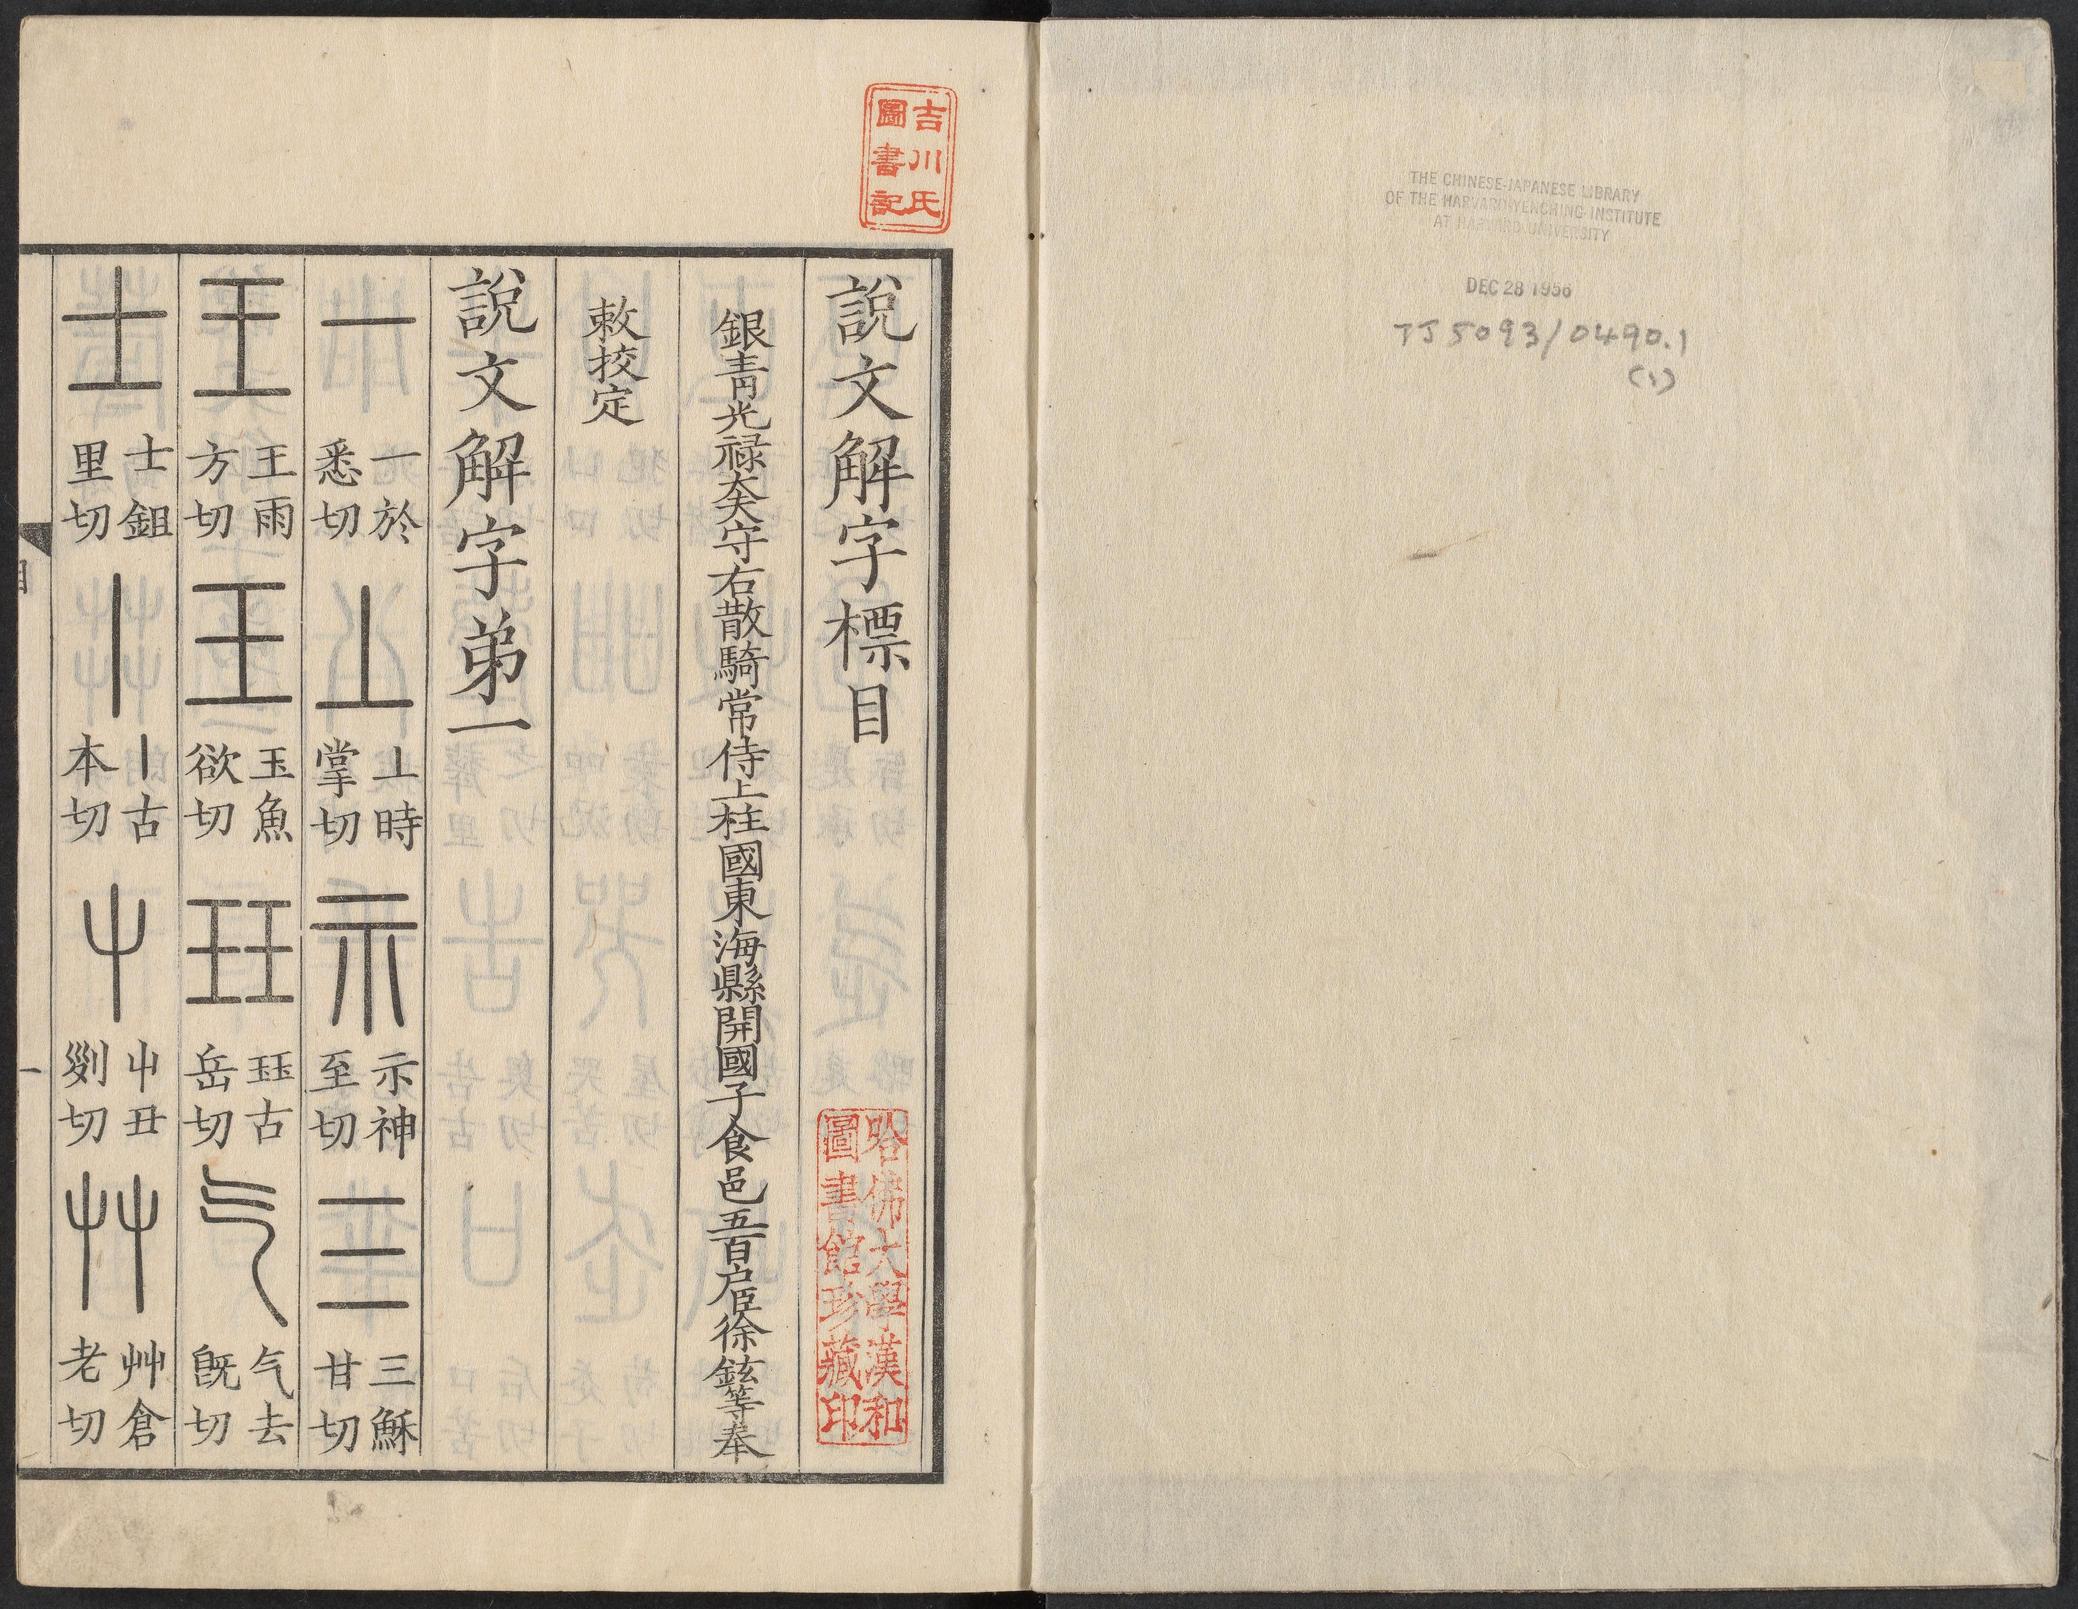 THE CHINESE-JAPANESE LIBRARY
OF THE HARVARD-YENCHING INSTITUTE
AT HARVARD UNIVERSITY
DEC 28 1956
TJ 5093/0490.1
(1)
吉川氏
圖書記
說文解字標目
哈佛大學漢和
圖書館珍藏印
銀青光禄大夫守右散騎常侍上柱國東海縣開國子食邑五百户臣徐鉉等奉
敕挍定
說文解字弟一
一 一於悉切 丄 丄時掌切 示 示神至切 三 三穌甘切
王 王雨方切 玉 玉魚欲切 玨 玨古岳切 气 气去旣切
士 士鉏里切 丨 丨古本切 屮 屮丑列切 艸 艸倉老切
目
一